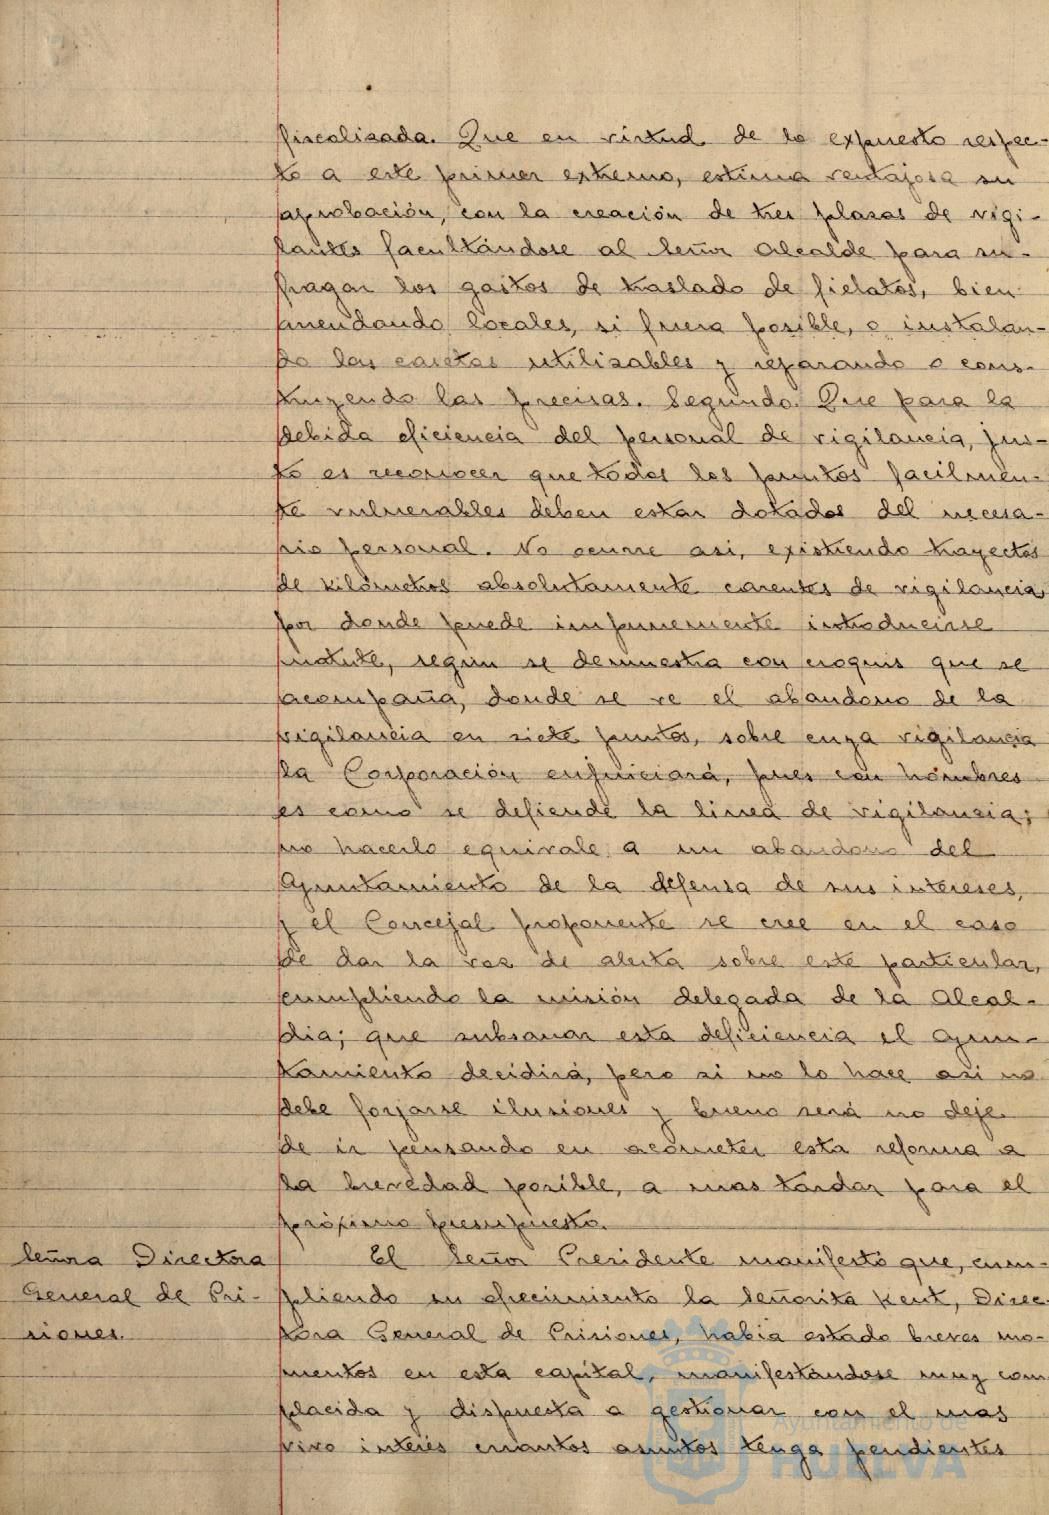 fiscalizada. Que en virtud de lo expuesto respec-
to a este primer extremo, estima ventajosa su
aprobación, con la creación de tres plazas de vigi-
lantes facultándose al Señor Alcalde para su-
fragar los gastos de traslado de fielatos, bien
arrendando locales, si fuera posible, o instalan-
do las casetas utilizables y reparando o cons-
truyendo las precisas. Segundo. Que para la
debida eficiencia del personal de vigilancia, jus-
to es reconocer que todos los puntos facilmen-
te vulnerables deben estar dotados del necesa-
rio personal. No ocurre asi, existiendo trayectos
de kilómetros absolutamente carentes de vigilancia
por donde puede impunemente introducirse
matute, según se demuestra con croquis que se
acompaña, donde se ve el abandono de la
vigilancia en siete puntos, sobre cuya vigilancia
la Corporación enjuiciará, pues con hombres
es como se defiende la linea de vigilancia;
no hacerlo equivale a un abandono del
Ayuntamiento de la defensa de sus intereses,
y el Concejal proponente se cree en el caso
de dar la voz de alerta sobre este particular,
cumpliendo la misión delegada de la Alcal-
dia; que subsanar esta deficiencia el Ayun-
tamiento decidirá, pero si no lo hace asi no
debe forjarse ilusiones y bueno será no deje
de ir pensando en acometer esta reforma a
la brevedad posible, a mas tardar para el
próximo presupuesto.
Señora Directora
General de Pri-
siones.
El Señor Presidente manifestó que, cum-
pliendo su ofrecimiento la Señorita Kent, Direc-
tora General de Prisiones, habia estado breves mo-
mentos en esta capital, manifestándose muy com
placida y dispuesta a gestionar con el mas
vivo interés cuantos asuntos tenga pendientes
Ayuntamiento de
HUELVA